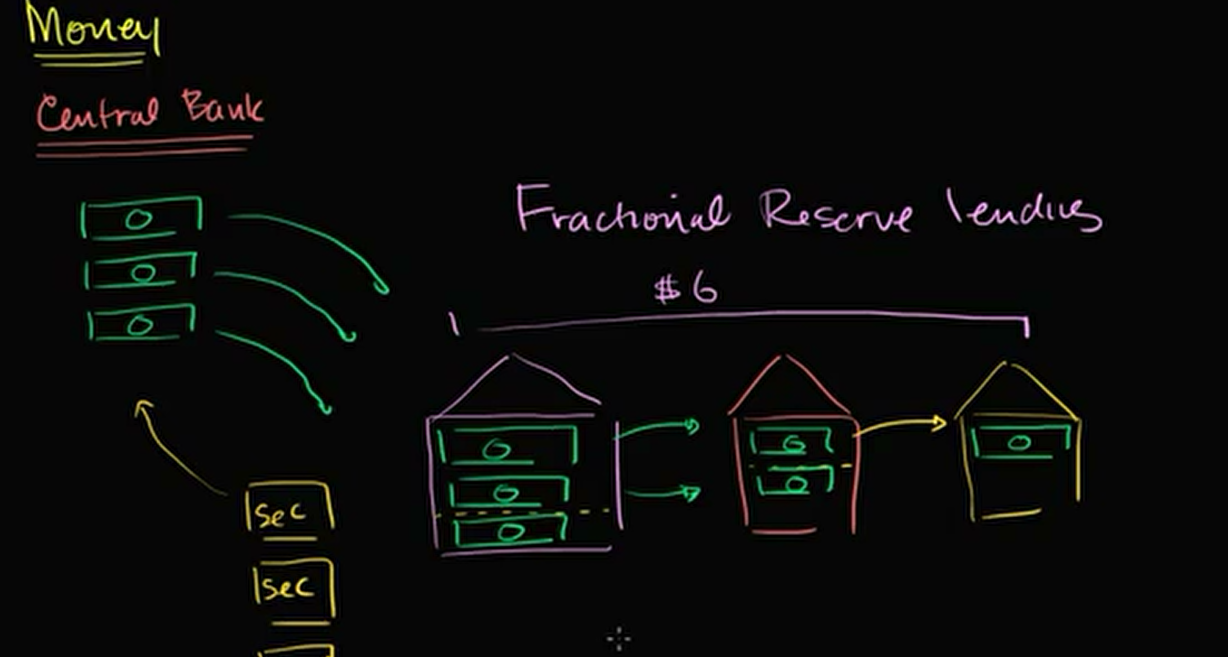 Money
Central Bank
Fractional Reserve lending
$6
sec
sec